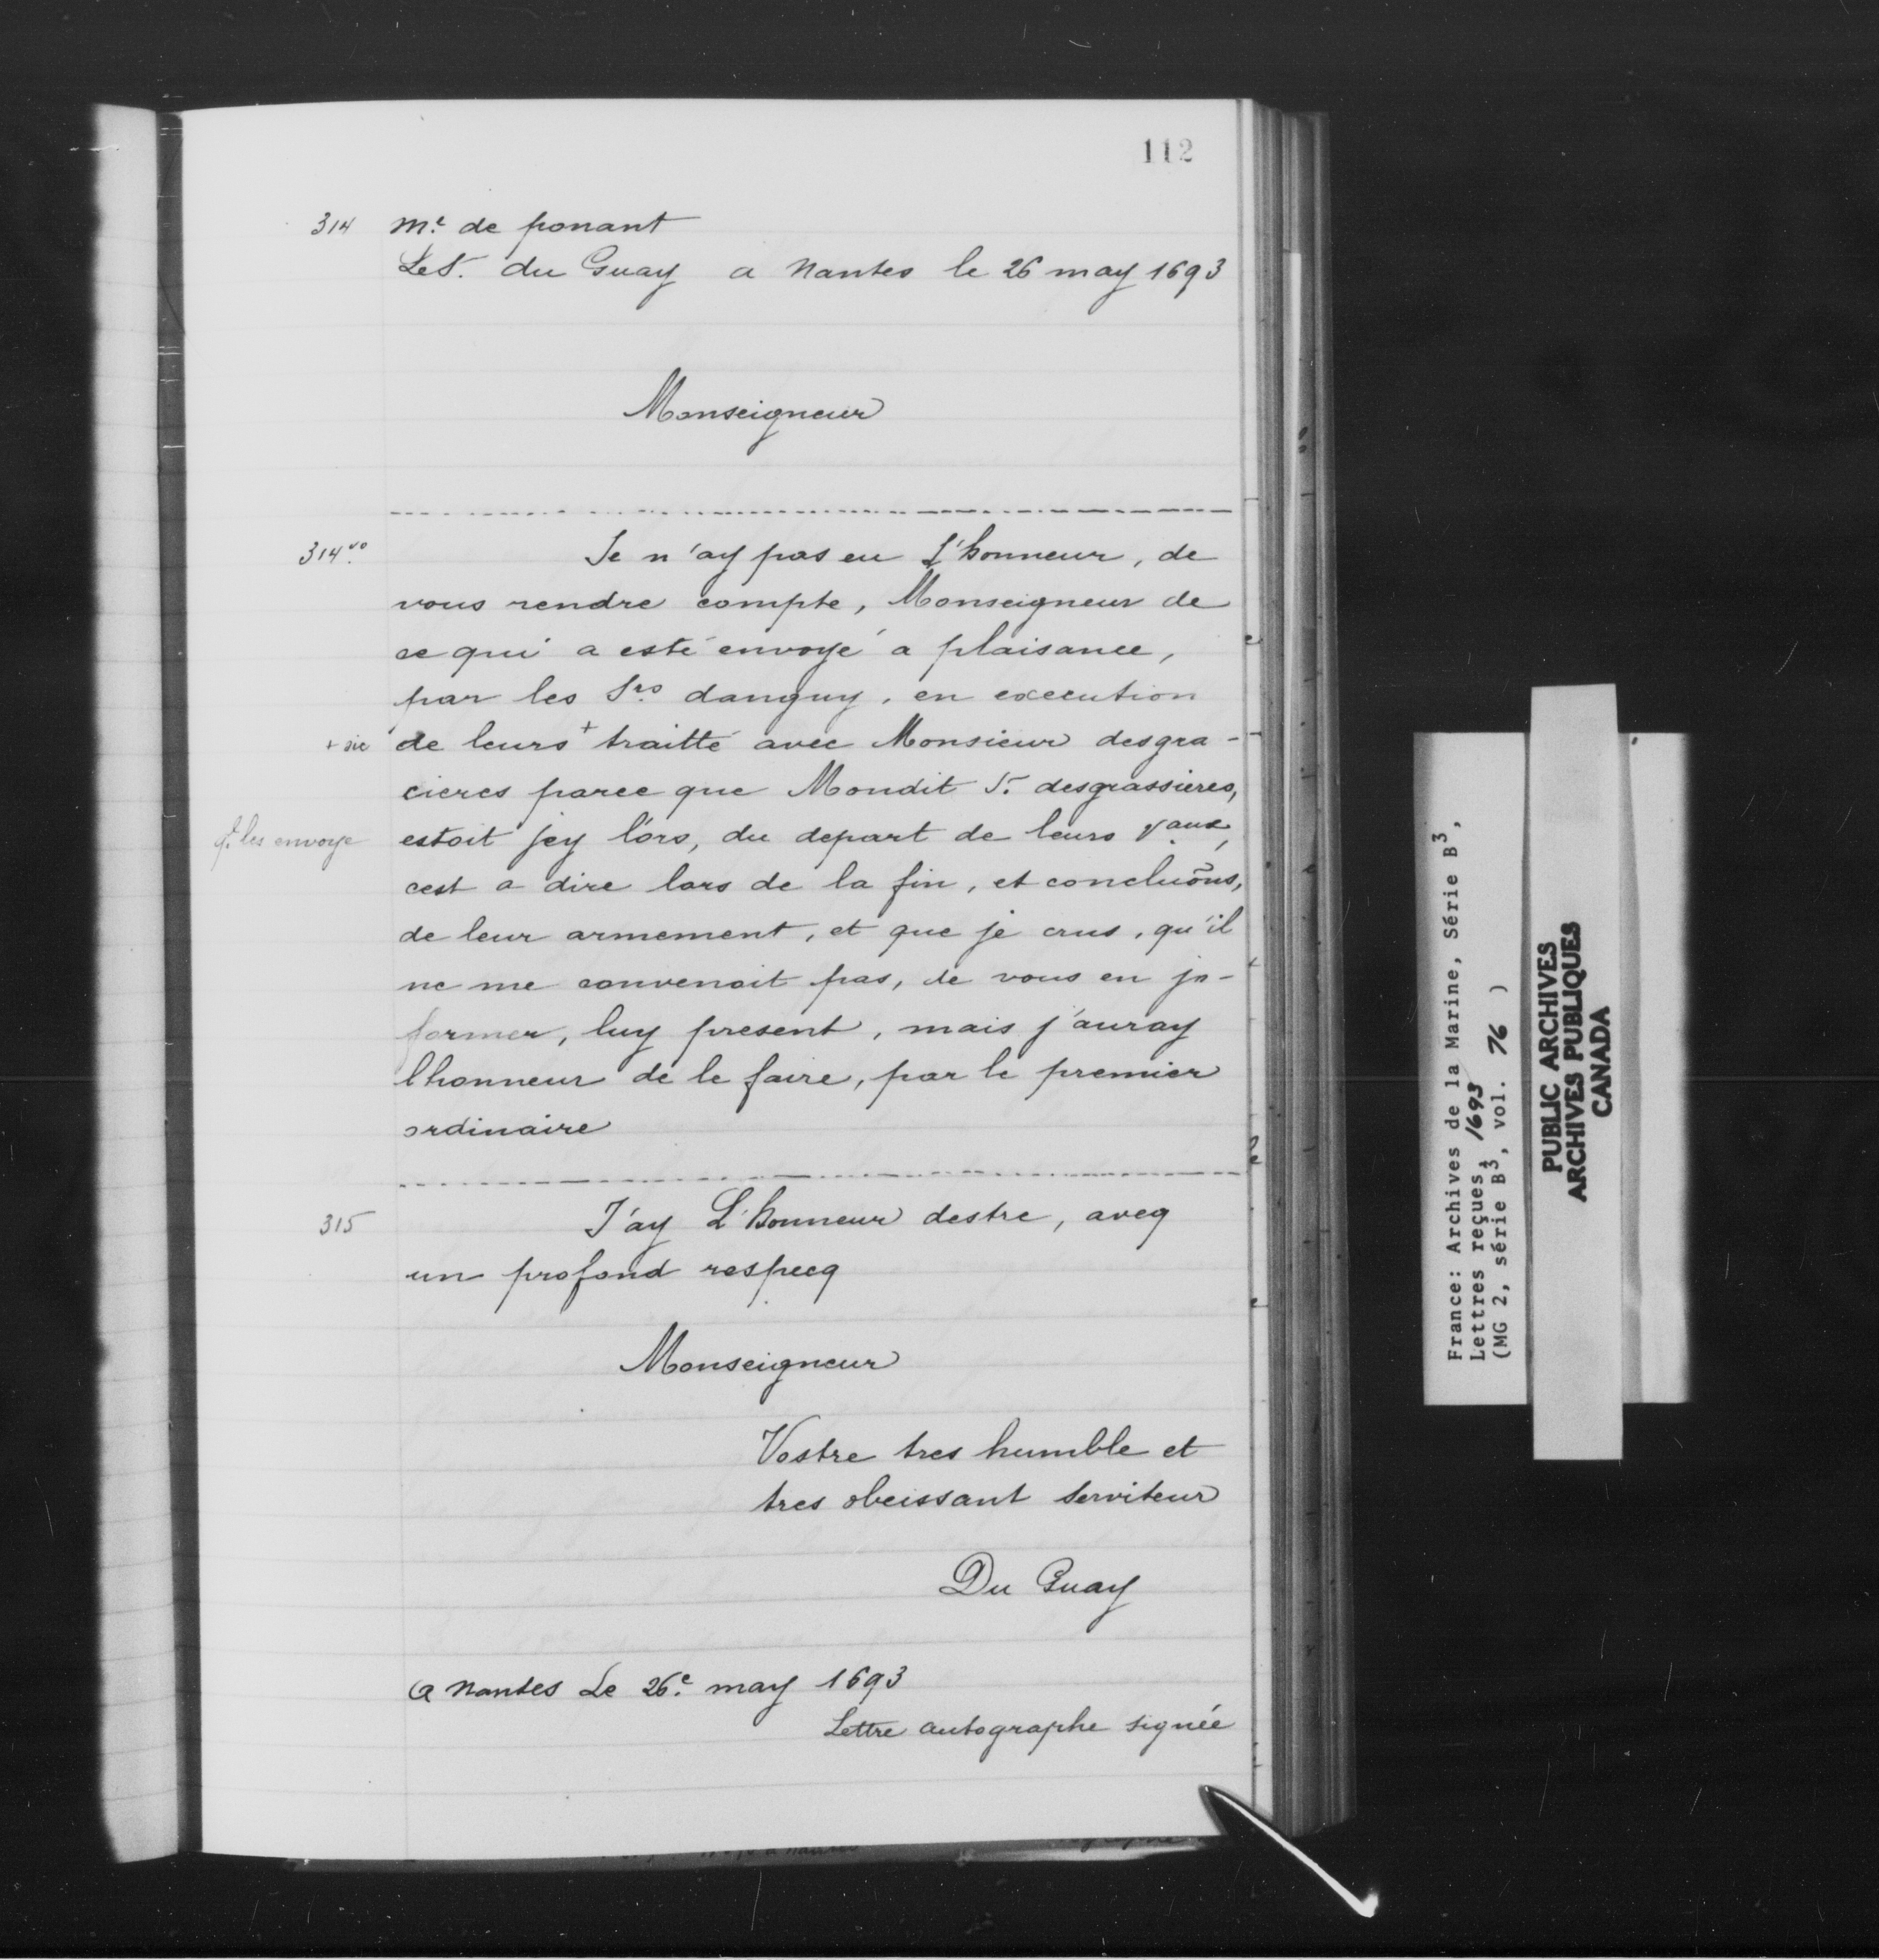 112
314 M.e de ponant
Le S.r du Guay a Nantes le 26 may 1693
Monseigneur
314 vo. Je n'ay pas eu L'honneur, de
vous rendre compte, Monseigneur de
ce qui a esté envoyé a plaisance,
par les Srs danguy, en execution
+ sic de leurs + traitté avec Monsieur desgra-
cieres parce que Mondit Sr. desgrassieres,
les envoye estoit jcy lors, du depart de leurs vaux,
cest a dire lors de la fin, et concluõns,
de leur armement, et que je crus, qu'il
ne me convenoit pas, de vous en jn-
former, luy present, mais j'auray
lhonneur de le faire, par le premier
ordinaire
315 J'ay L'honneur destre, aveq
un profond respecq
Monseigneur
Vostre tres humble et
tres obeissant serviteur
Du Guay
a Nantes Le 26e may 1693
Lettre autographe signée
France: Archives de la Marine, Série B3,
Lettres reçues, 1693
(MG 2, série B3, vol. 76 )
PUBLIC ARCHIVES
ARCHIVES PUBLIQUES
CANADA